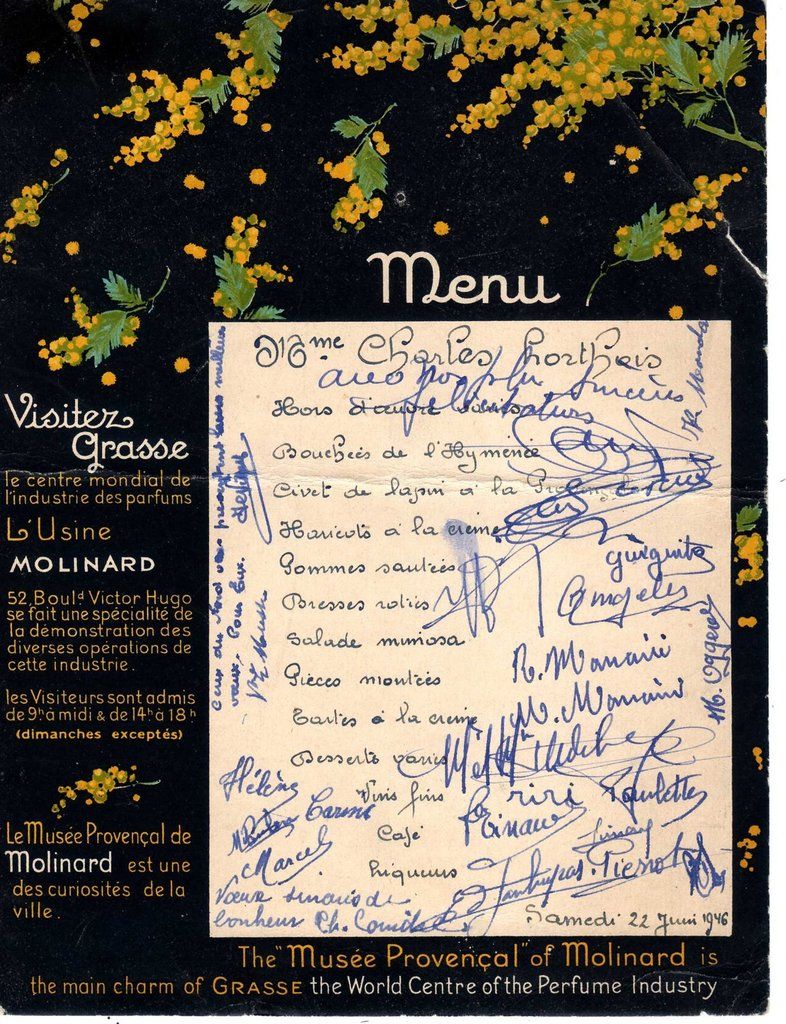 Menu
Mme Charles Lorthois
avec nos plus sincères
félicitations
Hors d'œuvre variés
Bouchées de l'Hyménée
Civet de lapin à la
Haricots à la crème
Pommes sautées
Bresses roties
Salade mimosa
Pièces montées
Tartes à la crème
Desserts variés
Vins fins
Café
Liqueurs
Samedi 22 Juin 1946
R. Manaini
M. Manaini
M. Oggero
riri
Paulette
Rinaud
Pierrot
Hélène
Carmé
Marcel
Vœux sincères de
bonheur Ch.
ceux du Nord vous présentent leurs meilleurs
vœux, Pour Eux.
Visitez
Grasse
le centre mondial de
l'industrie des parfums
L'Usine
MOLINARD
52, Bould Victor Hugo
se fait une spécialité de
la démonstration des
diverses opérations de
cette industrie.
les Visiteurs sont admis
de 9h à midi & de 14h à 18h
(dimanches exceptés)
Le Musée Provençal de
Molinard est une
des curiosités de la
ville.
The "Musée Provençal" of Molinard is
the main charm of GRASSE the World Centre of the Perfume Industry